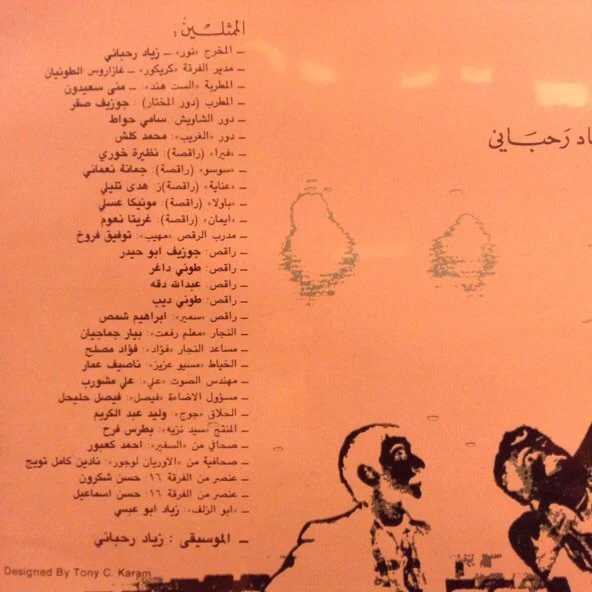 الممثلين :
– المخرج «نور» – زياد رحباني
– مدير الفرقة «كريكور» – غازاروس الطونيان
– المطربة «الست هند»: – منى سعيدون
– المطرب (دور المختار) : جوزيف صقر
– دور الشاويش: سامي حواط
– دور «الغريب»: محمد كلش
– «فيرا» (راقصة): نظيرة خوري
– «سوسو» (راقصة): جمانة نعماني
– «عناية» (راقصة)ز: هدى تليلي
– «باولا» (راقصة): مونيكا عسلي
– «ايمان» (راقصة): غريتا نعوم
– مدرب الرقص «مهيب»: توفيق فروخ
– راقص: جوزيف ابو حيدر
– راقص: طوني داغر
– راقص: عبدالله دقه
– راقص: طوني ديب
– راقص «سمير»: ابراهيم شمص
– النجار «معلم رفعت»: بيار جماجيان
– مساعد النجار «فؤاد»: فؤاد مصلح
– الخياط «مسيو عزيز»: ناصيف عمار
– مهندس الصوت «علي»: علي مشورب
– مسؤول الاضاءة «فيصل»: فيصل حليحل
– الحلاق «جوج»: وليد عبد الكريم
– المنتج «سيد نزيه»: بطرس فرح
– صحافي من «السفير»: احمد كعبور
– صحافية من «الاوريان لوجور»: نادين كامل تويج
– عنصر من الفرقة ١٦: حسن شكرون
– عنصر من الفرقة ١٦: حسن اسماعيل
– «ابو الزلف»: زياد ابو عبسي
– الموسيقى : زياد رحباني
اد رَحبَاني
Designed By Tony C. Karam